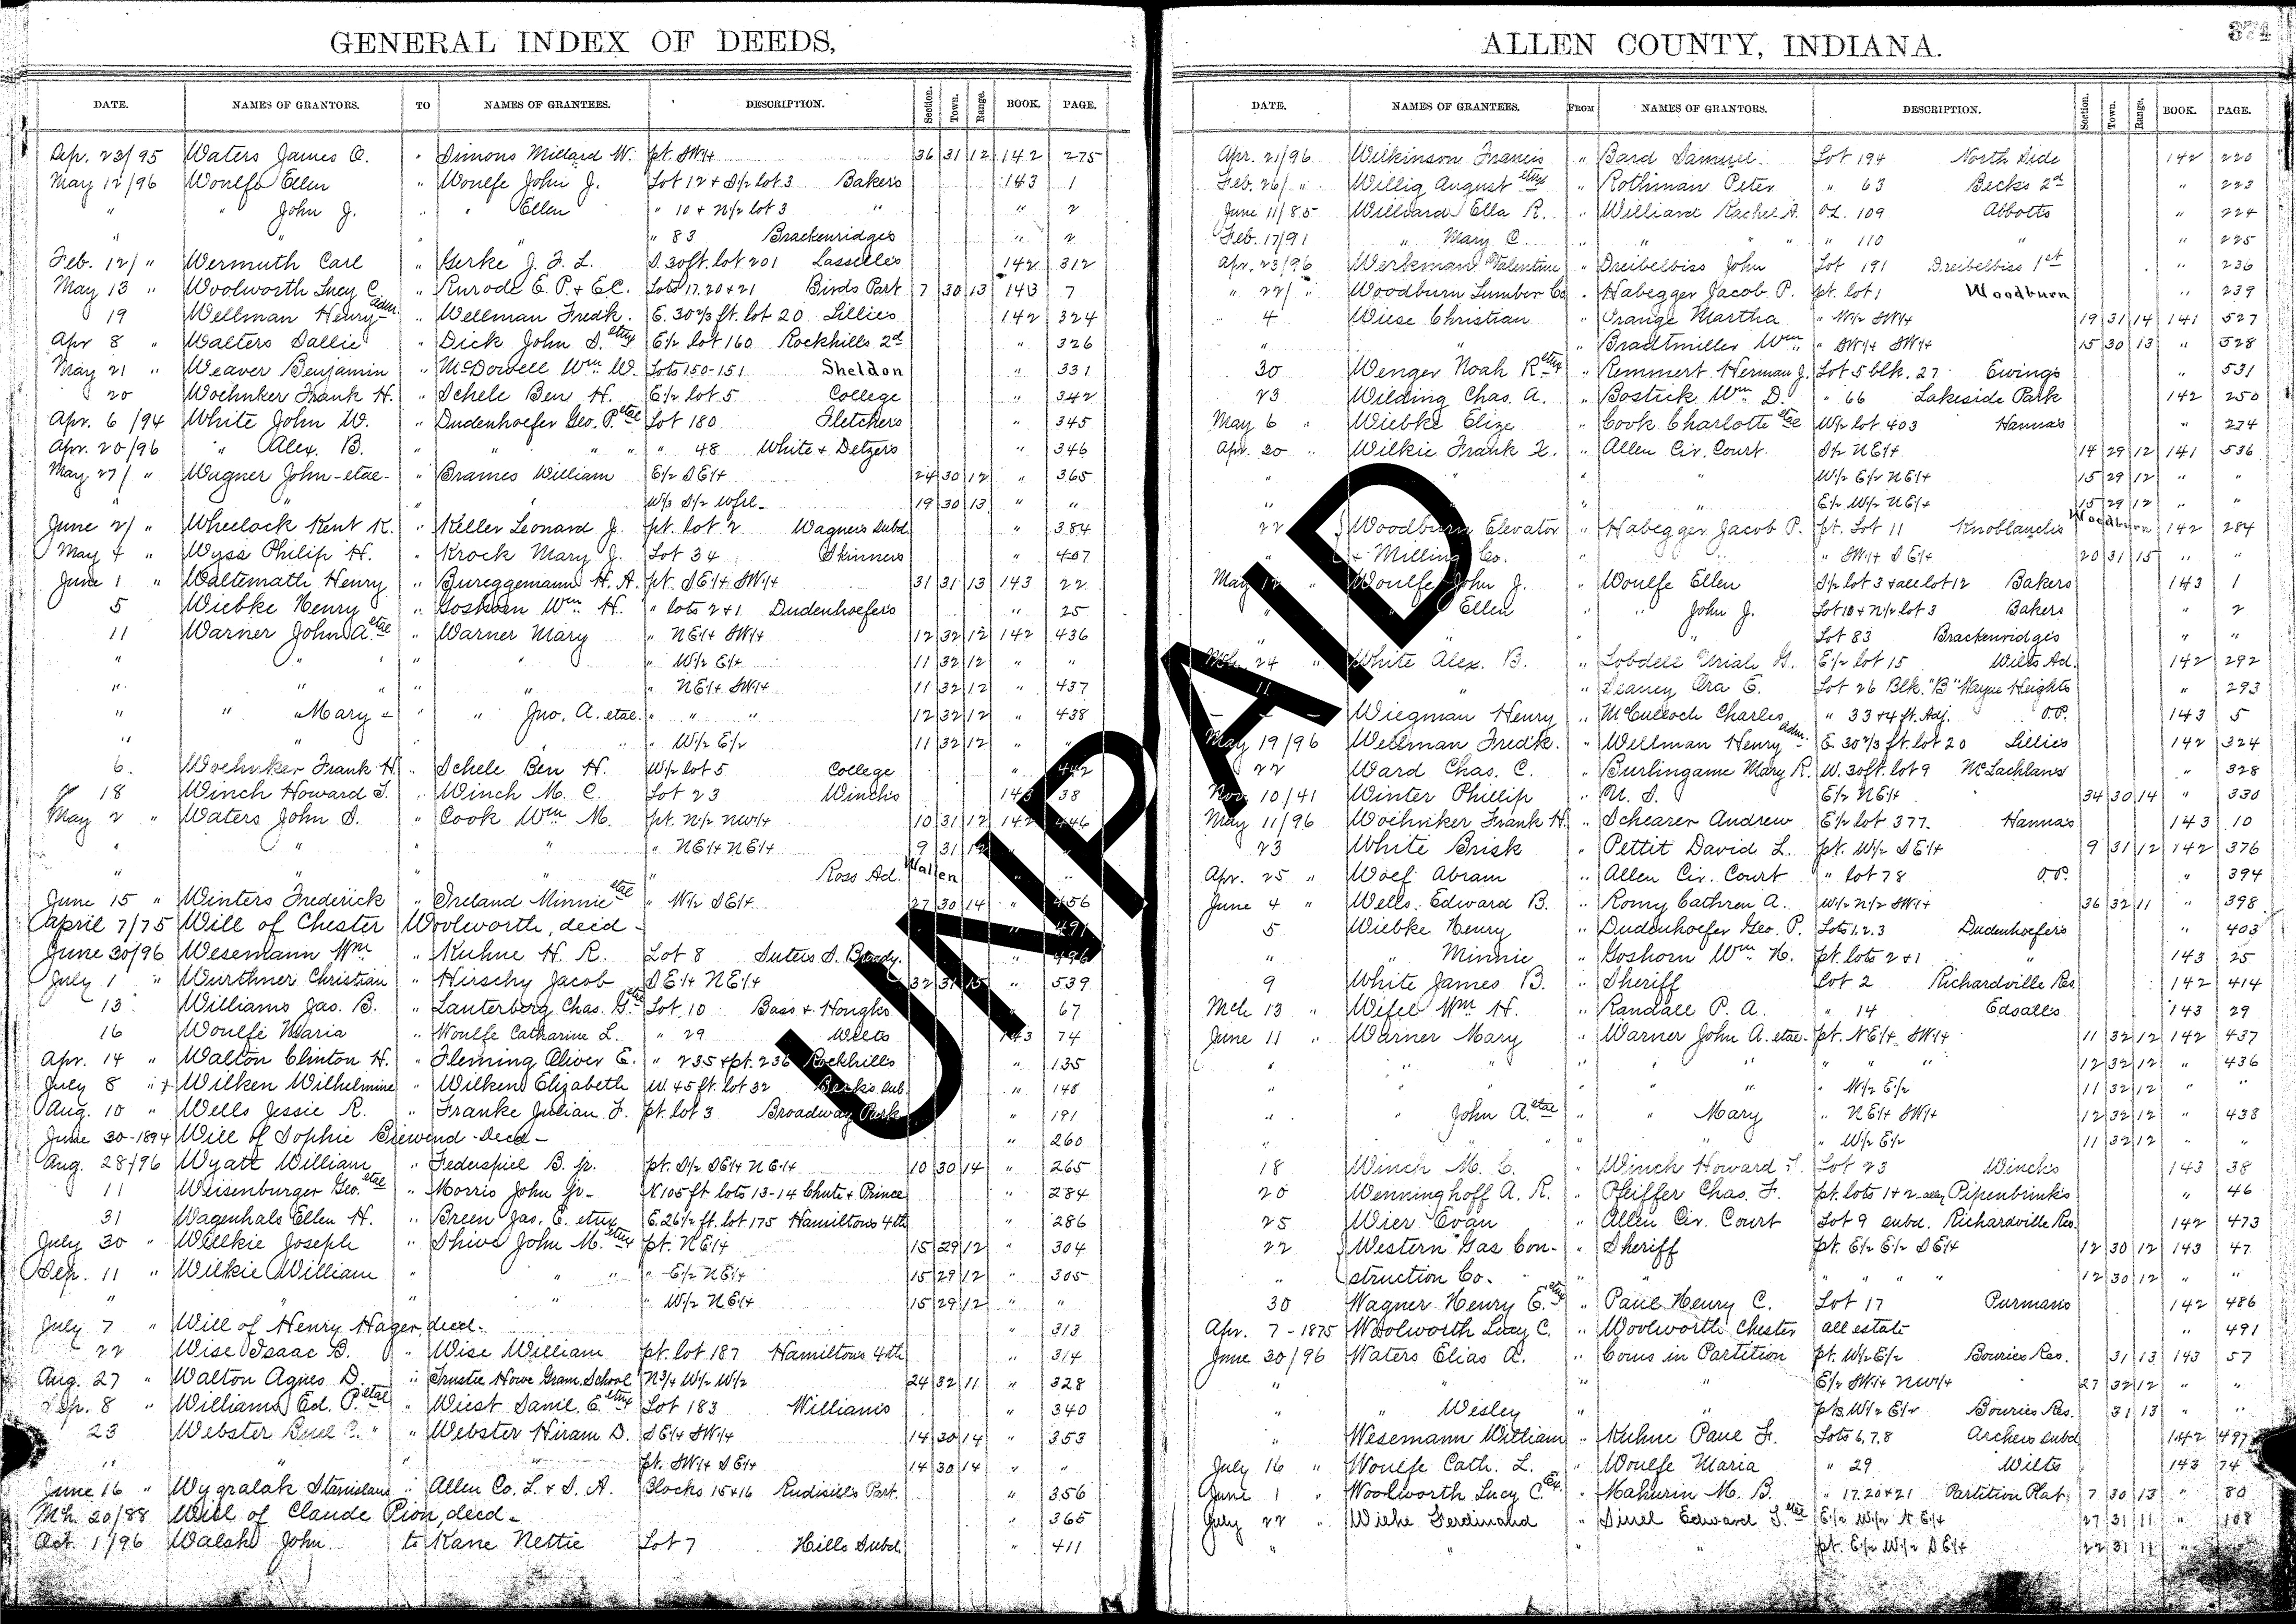 GENERAL INDEX OF DEEDS,
DATE. NAMES OF GRANTORS. TO NAMES OF GRANTEES. DESCRIPTION. Section. Town. Range. BOOK. PAGE.
Sep. 23/95 Waters James O. " Simons Millard W. pt. SW1/4 36 31 12 142 275
May 12/96 Woulfe Ellen " Woulfe John J. Lot 12 + S1/2 lot 3 Bakers 143 1
" " John J. " " Ellen " 10 + N1/2 lot 3 " " 2
" " " " " 83 Brackenridges " 2
Feb. 12/ " Wermuth Carl " Gerke J. F. L. S. 30 ft. lot 201 Lasselles 142 312
May 13 " Woolworth Lucy C. " Kurode E. P. + E.C. Lots 17.20+21 Birds Part 7 30 13 143 7
19 Wellman Henry adm " Wellman Fredk. E. 30 2/3 ft. lot 20 Lillies 142 324
Apr 8 " Walters Sallie " Dick John S. etux E1/2 lot 160 Rockhills 2d " 326
May 21 " Weaver Benjamin " McDowell Wm W. Lots 150-151 Sheldon " 331
20 Woehnker Frank H. " Schele Ben H. E1/2 lot 5 College " 342
Apr. 6/94 White John W. " Dudenhoefer Geo. P. etal Lot 180 Fletchers " 345
Apr. 20/96 " Alex. B. " " " " " 48 White + Detzers " 346
May 27/ " Wagner John-etal- " Brames William E1/2 SE1/4 24 30 12 " 365
" " " W1/3 S1/2 Wfrl- 19 30 13 " "
June 2/ " Wheelock Kent K. " Keller Leonard J. pt. lot 2 Wagners Subd. " 384
May 4 " Wyss Philip H. " Krock Mary J. Lot 34 Skinners " 407
June 1 " Waltemath Henry " Bureggemann H. A. pt. SE1/4 SW1/4 31 31 13 143 22
5 Wiebke Henry " Goshorn Wm H. " lots 2+1 Dudenhoefers " 25
11 Warner John A. etal " Warner Mary " NE1/4 SW1/4 12 32 12 142 436
" " " " " " W1/2 E1/4 11 32 12 " "
" " " " " " NE1/4 SW1/4 11 32 12 " 437
" " Mary " " Jno. A. etal. " " " 12 32 12 " 438
" " " " " W1/2 E1/2 11 32 12 " "
6. Woehnker Frank H. " Schele Ben H. W1/2 lot 5 College " 442
18 Winch Howard T. " Winch M. C. Lot 23 Winchs 143 38
May 2 " Waters John S. " Cook Wm M. pt. N1/2 NW1/4 10 31 12 142 446
" " " " " NE1/4 NE1/4 9 31 12 " "
" " " " " Ross Ad. Wallen " "
June 15 " Winters Frederick " Ireland Minnie etal " W1/2 SE1/4 27 30 14 " 456
April 7/75 Will of Chester Woolworth, decd- " 491
June 30/96 Wesemann Wm " Kuhne H. R. Lot 8 Suters S. Brady. " 496
July 1 " Wurthner Christian " Hirschy Jacob SE1/4 NE1/4 32 31 15 " 539
13 Williams Jas. B. " Lauterberg Chas. G. etal Lot 10 Bass + Houghs 67
16 Woulfe Maria " Woulfe Catharine L. " 29 Wilts 143 74
Apr. 14 " Walton Clinton H. " Fleming Oliver E. " 235 + pt. 236 Rockhills " 135
July 8 " Wilken Wilhelmine " Wilkens Elizabeth W. 45 ft. lot 32 Becks Sub. " 148
Aug. 10 " Wells Jessie R. " Franke Julian F. pt. lot 3 Broadway Park " 191
June 30-1894 Will of Sophie Siewend-Decd- " 260
Aug. 28/96 Wyatt William " Federspiel B. jr. pt. S1/2 SE1/4 NE1/4 10 30 14 " 265
11 Weisenburger Geo. etal " Morris John Jr- N 105 ft lots 13-14 Chute + Prince " 284
31 Wagenhals Ellen H. " Breen Jas. E. etux E. 26 1/2 ft. lot 175 Hamiltons 4th " 286
July 30 " Wilkie Joseph " Shive John M. etux pt. NE1/4 15 29 12 " 304
Sep. 11 " Wilkie William " " " " E1/2 NE1/4 15 29 12 " 305
" " " " " W1/2 NE1/4 15 29 12 " "
July 7 " Will of Henry Hager, decd. " 313
22 Wise Isaac B. " Wise William pt. lot 187 Hamiltons 4th " 314
Aug. 27 " Walton Agnes D. " Trustee Howe Gram. School N3/4 W1/2 W1/2 24 32 11 " 328
Sep. 8 " Williams Ed. P. etal " Wiest Danil. E. etux Lot 183 Williams " 340
23 Webster " " Webster Hiram D. SE1/4 SW1/4 14 30 14 " 353
" " " " pt. SW1/4 SE1/4 14 30 14 " "
June 16 " Wygralak Stanislaus " Allen Co. L. + S. A. Blocks 15+16 Rudisills Part. " 356
Mch. 20/88 Will of Claude Pion, decd- " 365
Oct. 1/96 Walsh John to Kane Nettie Lot 7 Hills Subd. " 411
ALLEN COUNTY, INDIANA.
374
DATE. NAMES OF GRANTEES. FROM NAMES OF GRANTORS. DESCRIPTION. Section. Town. Range. BOOK. PAGE.
Apr. 21/96 Wilkinson Francis " Bard Samuel Lot 194 North Side 142 220
Feb. 26/ " Willig August etux " Rothman Peter " 63 Becks 2d " 223
June 11/85 Williard Ella R. " Williard Rachel A. OL. 109 Abbotts " 224
Feb. 17/91 " Mary C. " " " " 110 " " 225
Apr. 23/96 Werkman Valentine " Dreibelbiss John Lot 191 Dreibelbiss 1st " 236
" 22/ " Woodburn Lumber Co. " Habegger Jacob P. pt. lot 1 Woodburn " 239
4 Wiese Christian " Orange Martha " W1/2 SW1/4 19 31 14 141 527
" " " Bradtmiller Wm " SW1/4 SW1/4 15 30 13 " 528
30 Wenger Noah R etux " Remmert Herman J. Lot 5 blk. 27 Ewings " 531
23 Wilding Chas. A. " Bostick Wm D. " 66 Lakeside Park 142 250
May 6 " Wiebke Elize " Cook Charlotte etal W1/2 lot 403 Hannas " 274
Apr. 20 " Wilkie Frank X. " Allen Cir. Court S1/2 NE1/4 14 29 12 141 536
" " " " W1/2 E1/2 NE1/4 15 29 12 " "
" " " E1/2 W1/2 NE1/4 15 29 12 " "
22 Woodburn Elevator " Habegger Jacob P. pt. Lot 11 Knoblauchs Woodburn 142 284
" + Milling Co. " " " SW1/4 SE1/4 20 31 15 " "
May 12 " Woulfe John J. " Woulfe Ellen S1/2 lot 3 + all lot 12 Bakers 143 1
" " Ellen " " John J. Lot 10 + N1/2 lot 3 Bakers " 2
" " " " Lot 83 Brackenridges " "
Mch. 24 " White Alex. B. " Lobdell Uriah G. E1/2 lot 15 Wilts Ad. 142 292
11 " " Ora E. Lot 26 Blk. "B" Wayne Heights " 293
— — — Wiegman Henry " McCulloch Charles " 33+4 ft. Adj. O.P. 143 5
May 19/96 Wellman Fredk. " Wellman Henry adm. E. 30 2/3 ft. lot 20 Lillies 142 324
22 Ward Chas. C. " Burlingame Mary R. W. 30 ft. lot 9 McLachlans " 328
Nov. 10/41 Winter Phillip " U. S. E1/2 NE1/4 34 30 14 " 330
May 11/96 Woehnker Frank H. " Schearer Andrew E1/2 lot 377 Hannas 143 10
23 White Brisk " Pettit David L. pt. W1/2 SE1/4 9 31 12 142 376
Apr. 25 " Wolf Abram " Allen Cir. Court " lot 78 O.P. " 394
June 4 " Wells Edward B. " Romy Cathren A. W1/2 N1/2 SW1/4 36 32 11 " 398
5 Wiebke Henry " Dudenhoefer Geo. P. Lots 1.2.3 Dudenhoefers " 403
" " Minnie " Goshorn Wm H. pt. lots 2+1 " 143 25
9 White James B. " Sheriff Lot 2 Richardville Res. 142 414
Mch 13 " Wifel Wm H. " Randall P. A. " 14 Edsalls 143 29
June 11 " Warner Mary " Warner John A. etal- pt. NE1/4 SW1/4 11 32 12 142 437
" " " " " " " " 12 32 12 " 436
" " " " " " W1/2 E1/2 11 32 12 " "
" " John A. etal " " Mary " NE1/4 SW1/4 12 32 12 " 438
" " " " " W1/2 E1/2 11 32 12 " "
18 Winch M. C. " Winch Howard T. Lot 23 Winchs 143 38
20 Wenninghoff A. R. " Pfeiffer Chas. F. pt. lots 1+2-alley Pipenbrinks " 46
25 Wier Evan " Allen Cir. Court Lot 9 subd. Richardville Res. 142 473
22 Western Gas Con- " Sheriff pt. E1/2 E1/2 SE1/4 12 30 12 143 47
" struction Co. " " " " " 12 30 12 " "
30 Wagner Henry E. etux " Paul Henry C. Lot 17 Purmans 142 486
Apr. 7-1875 Woolworth Lucy C. " Woolworth Chester all estate " 491
June 30/96 Waters Elias A. " Coms in Partition pt. W1/2 E1/2 Bouries Res. 31 13 143 57
" " " " E1/2 SW1/4 NW1/4 27 32 12 " "
" " Wesley " " pts. W1/2 E1/2 Bouries Res. 31 13 " "
" Wesemann William " Kuhne Paul F. Lots 6,7,8 Archers Subd 142 497
July 16 " Woulfe Cath. L. " Woulfe Maria " 29 Wilts 143 74
June 1 " Woolworth Lucy C. Ex. " Mahurin M. B. " 17.20+21 Partition Plat 7 30 13 " 80
July 22 " Wiehe Ferdinand " Edward etal E1/2 W1/2 NE1/4 27 31 11 " 108
" " " pt. E1/2 W1/2 SE1/4 22 31 11 "
UNPAID